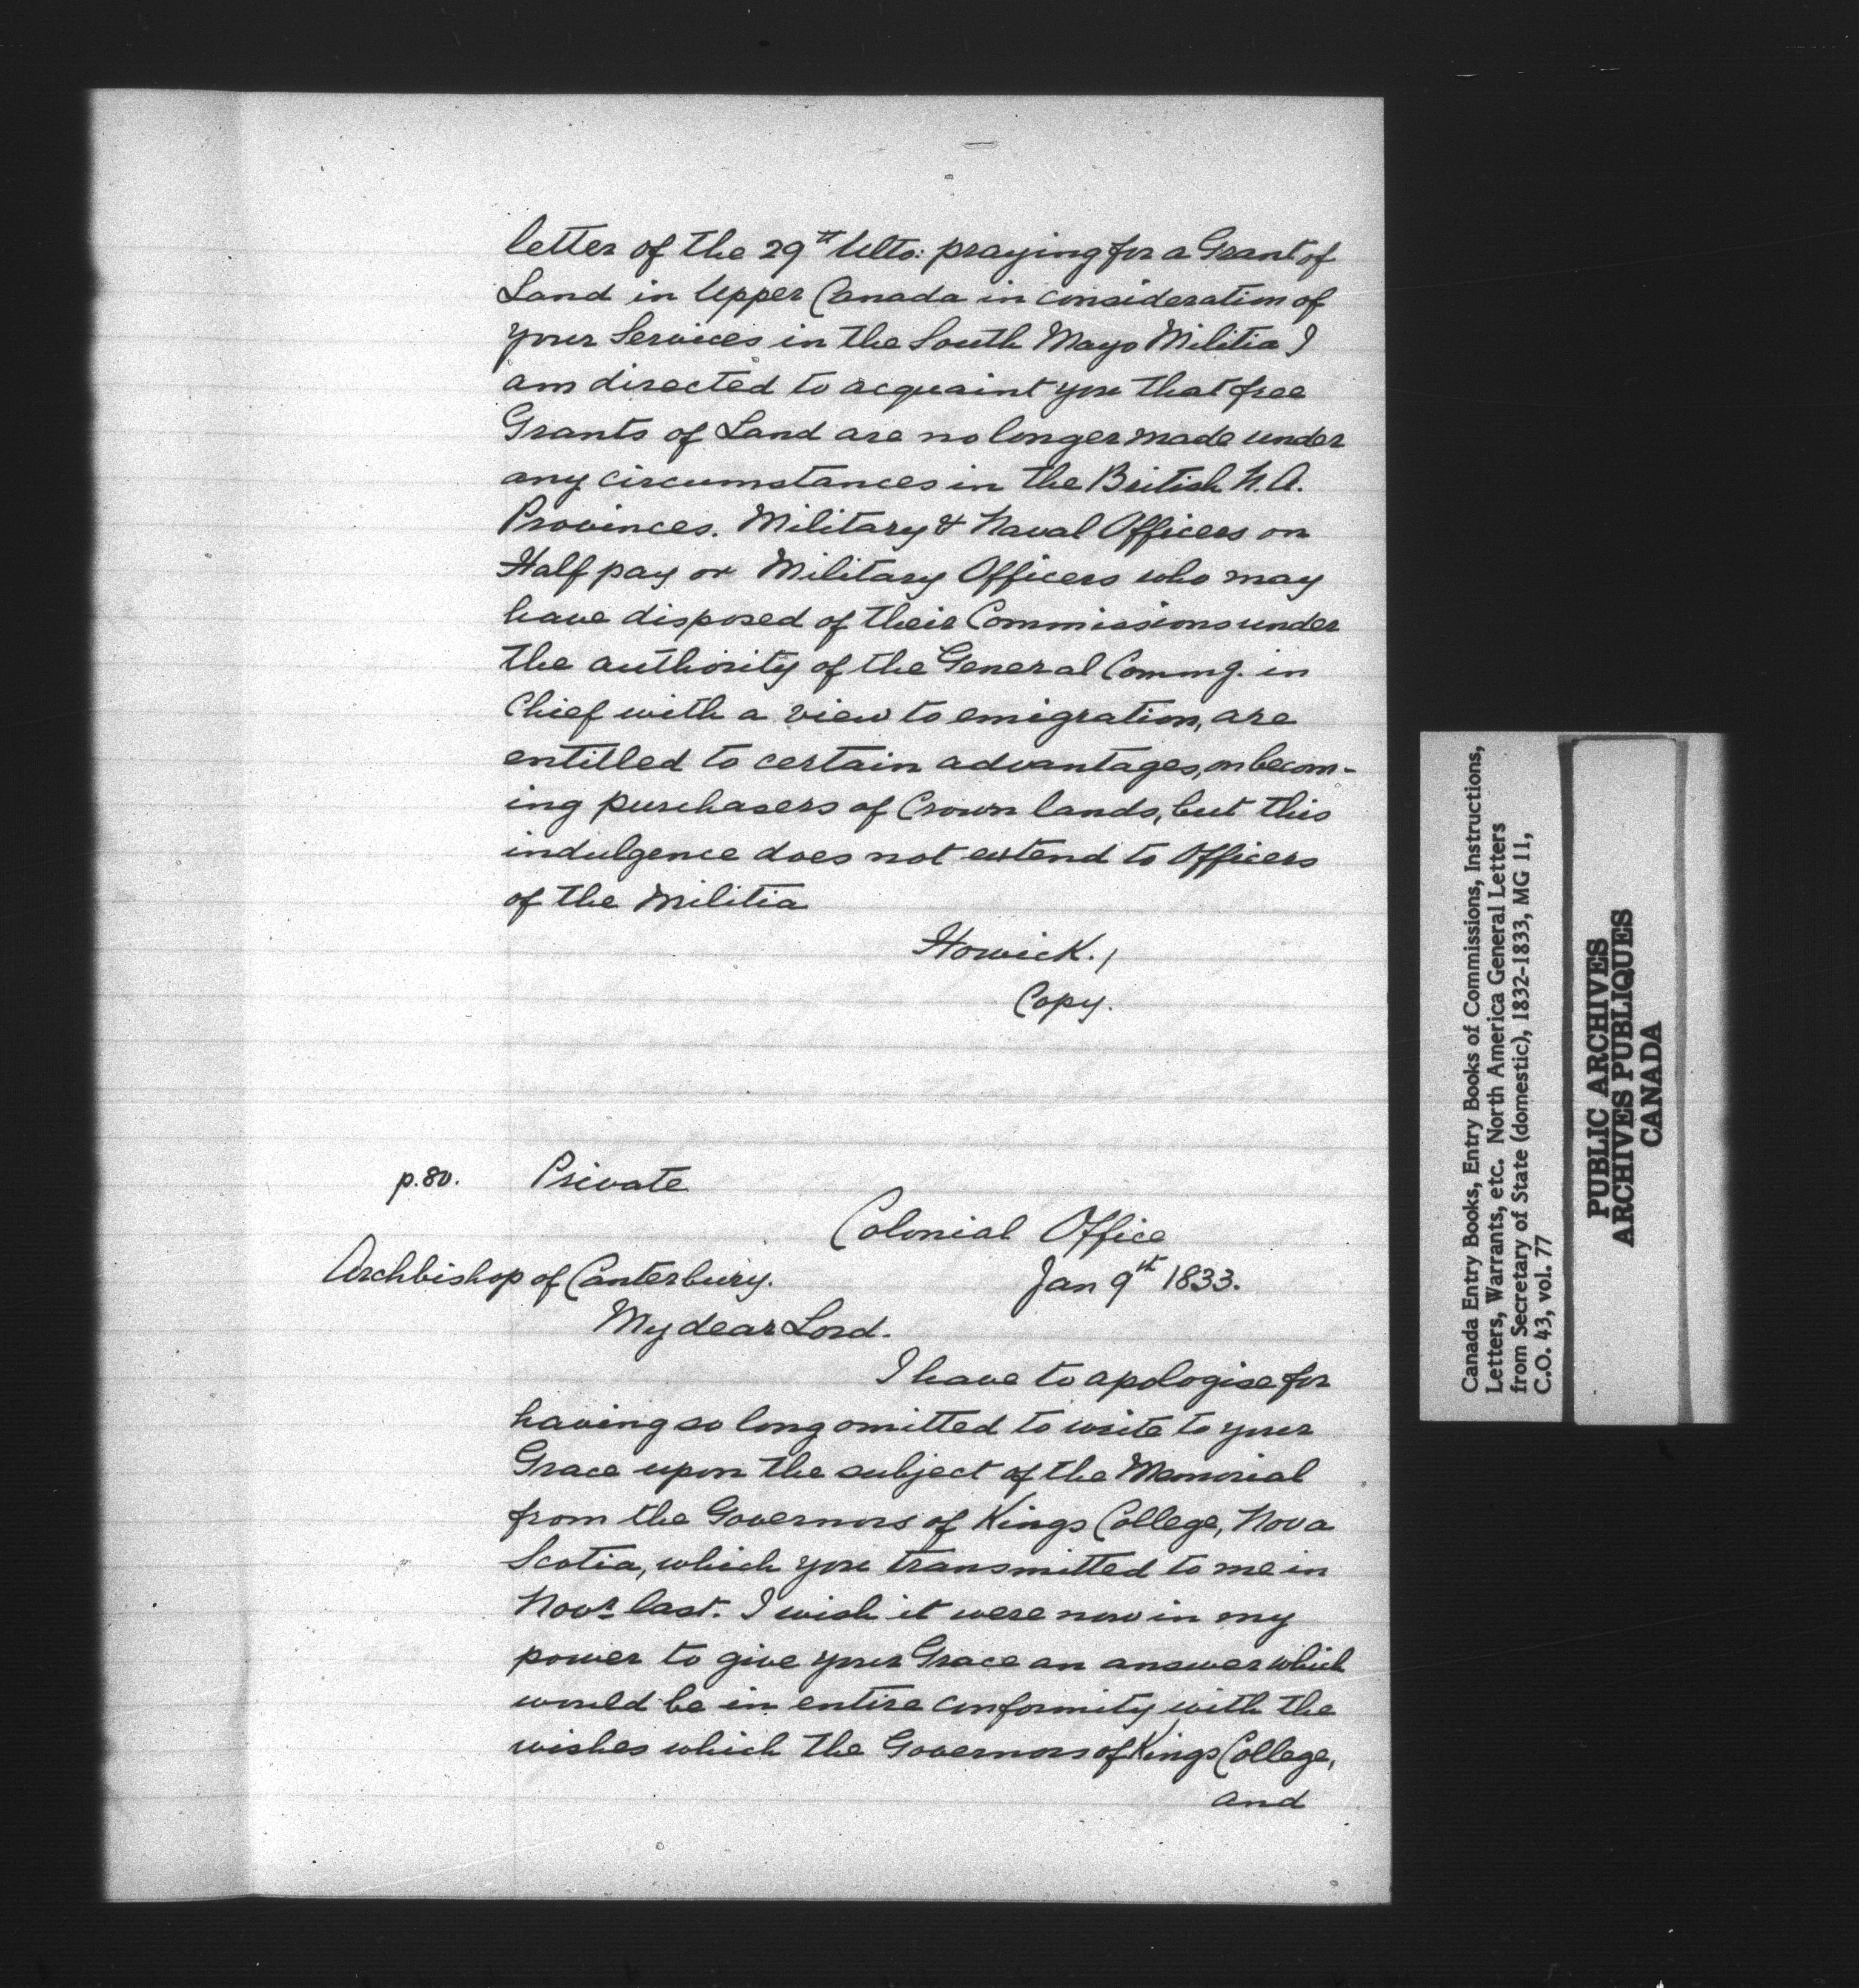 letter of the 29th Ulto: praying for a Grant of
Land in Upper Canada in consideration of
your Services in the South Mayo Militia I
am directed to acquaint you that free
Grants of Land are no longer made under
any circumstances in the British N.A.
Provinces. Military & Naval Officers on
Half pay or Military Officers who may
have disposed of their Commissions under
the authority of the General Commg. in
Chief with a view to emigration, are
entitled to certain advantages, on becom-
ing purchasers of Crown lands, but this
indulgence does not extend to Officers
of the Militia
Howick./
Copy.
p.80. Private
Colonial Office
Archbishop of Canterbury. Jan 9th 1833.
My dear Lord.
I have to apologise for
having so long omitted to write to your
Grace upon the subject of the Memorial
from the Governors of Kings College, Nova
Scotia, which you transmitted to me in
Novr last. I wish it were now in my
power to give your Grace an answer which
would be in entire conformity with the
wishes which the Governors of Kings College,
and
Canada Entry Books, Entry Books of Commissions, Instructions,
Letters, Warrants, etc. North America General Letters
from Secretary of State (domestic), 1832-1833, MG 11,
C.O. 43, vol. 77
PUBLIC ARCHIVES
ARCHIVES PUBLIQUES
CANADA